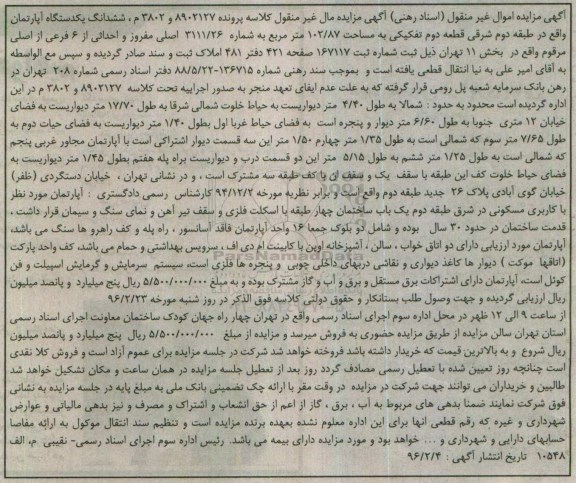 آگهی مزایده اموال غیر منقول (اسناد رهنی) آگهی مزایده مال غیر منقول کلاسه پرونده ۸۹۰۲۱۲۷ و ۳۸۰۲ م ، ششدانگ یکدستگاه آپارتمان
واقع در طبقه دوم شرقی قطعه دوم تفکیکی به مساحت ۱۰۲/۸۷ متر مربع به شماره ۳۱۱۱/۲۶ اصلی مفروز و احداثی از ۶ فرعی از اصلی
مرقوم واقع در بخش ۱۱ تهران ذیل ثبت شماره ثبت ۱۶۷۱۱۷ صفحه ۴۲۱ دفتر ۴۸۱ املاک ثبت و سند صادر گردیده و سپس مع الواسطه
به آقای امیر علی به نیا انتقال قطعی یافته است و بموجب سند رهنی شماره ۱۳۶۷۱۵-۸۸/۵/۲۲ دفتر اسناد رسمی شماره ۲۰۸ تهران در
رهن بانک سرمایه شعبه پل رومی قرار گرفته که به علت عدم ایفای تعهد منجر به صدور اجراییه تحت کلاسه ۸۹۰۲۱۲۷ و ۳۸۰۲ م در این
اداره گردیده است محدود به حدود : شمالا به طول ۴/۴۰ متر دیواریست به حیاط خلوت شمالی شرقا به طول ۱۷/۷۰ متر دیواریست به فضای
خیابان ۱۲ متری جنوبا به طول ۶/۶۰ متر دیوار و پنجره است به فضای حیاط غربا اول بطول ۱/۴۰ متر دیواریست به فضای حیات دوم به
طول ۷/۶۵ متر سوم که شمالی است به طول ۱/۳۵ متر چهارم ۱/۵۰ متر این سه قسمت دیوار اشتراکی است با آپارتمان مجاور غربی پنجم
که شمالی است به طول ۱/۲۵ متر ششم به طول ۵/۱۵ متر این دو قسمت درب و دیواریست براه پله هفتم بطول ۱/۴۵ متر دیواریست به
فضای حیاط خلوت کف این طبقه با سقف یک و سقف آن با کف طبقه سه مشترک است ، و در نشانی تهران ، خیابان دستگردی (ظفر)
خیابان گوی آبادی پلاک ۲۶ جدید طبقه دوم واقع است و برابر نظریه مورخه ۹۴/۱۲/۲ کارشناس رسمی دادگستری : آپارتمان مورد نظر
با کاربری مسکونی در شرق طبقه دوم یک باب ساختمان چهار طبقه با اسکلت فلزی و سقف تیر آهن و نمای سنگ و سیمان قرار داشت ،
قدمت ساختمان در حدود ۳۰ سال بوده و شامل دو بلوک جمعا ۱۶ واحد آپارتمان فاقد آسانسور ، راه پله و کف راهرو ها سنگ می باشد.
آپارتمان مورد ارزیابی دارای دو اتاق خواب ، سالن ، آشپزخانه اوپن با کابینت ام دی اف ، سرویس بهداشتی و حمام می باشد، کف واحد پارکت
(اتاقها موکت ) دیوار ها کاغذ دیواری و نقاشی دربهای داخلی چوبی و پنجره ها فلزی است، سیستم سرمایش و گرمایش اسپیلت و فن
کوئل است، آپارتمان دارای اشتراکات برق مستقل و برق و آب و گاز مشترک بوده و به مبلغ ۵/۵۰۰/۰۰۰/۰۰۰ ریال پنج میلیارد و پانصد میلیون
ریال ارزیابی گردیده و جهت وصول طلب بستانکار و حقوق دولتی کلاسه فوق الذکر در روز شنبه مورخه ۹۶/۲/۲۳
از ساعت ۹ الی ۱۲ ظهر در محل اداره سوم اجرای اسناد رسمی واقع در تهران چهار راه جهان کودک ساختمان معاونت اجرای اسناد رسمی
استان تهران سالن مزایده از طریق مزایده حضوری به فروش میرسد و مزایده از مبلغ ۵/۵۰۰/۰۰۰/۰۰۰ ریال پنج میلیارد و پانصد میلیون
ریال شروع و به بالاترین قیمت که خریدار داشته باشد فروخته خواهد شد شرکت در جلسه مزایده برای عموم آزاد است و فروش کلا نقدی
است چنانچه روز تعیین شده با تعطیل رسمی مصادف گردد روز بعد از تعطیل جلسه مزایده در همان ساعت و مکان تشکیل خواهد شد
طالبین و خریداران می توانند جهت شرکت در مزایده در وقت مقر با ارائه چک تضمینی بانک ملی به مبلغ پایه در جلسه مزایده به نشانی
فوق شرکت نمایند ضمنا بدهی های مربوط به آب ، برق ، گاز از اعم از حق انشعاب و اشتراک و مصرف و نیز بدهی مالیاتی و عوارض
شهرداری و غیره که رقم قطعی انها برای این اداره معلوم نشده بعهده برنده مزایده است و تنظیم سند انتقال موکول به ارائه مفاصا
حسابهای دارایی و شهرداری و ... خواهد بود و مورد مزایده دارای بیمه می باشد. رئیس اداره سوم اجرای اسناد رسمی- نقیبی م، الف
۱۰۵۴۸ تاریخ انتشار آگهی : ۹۶/۲/۴